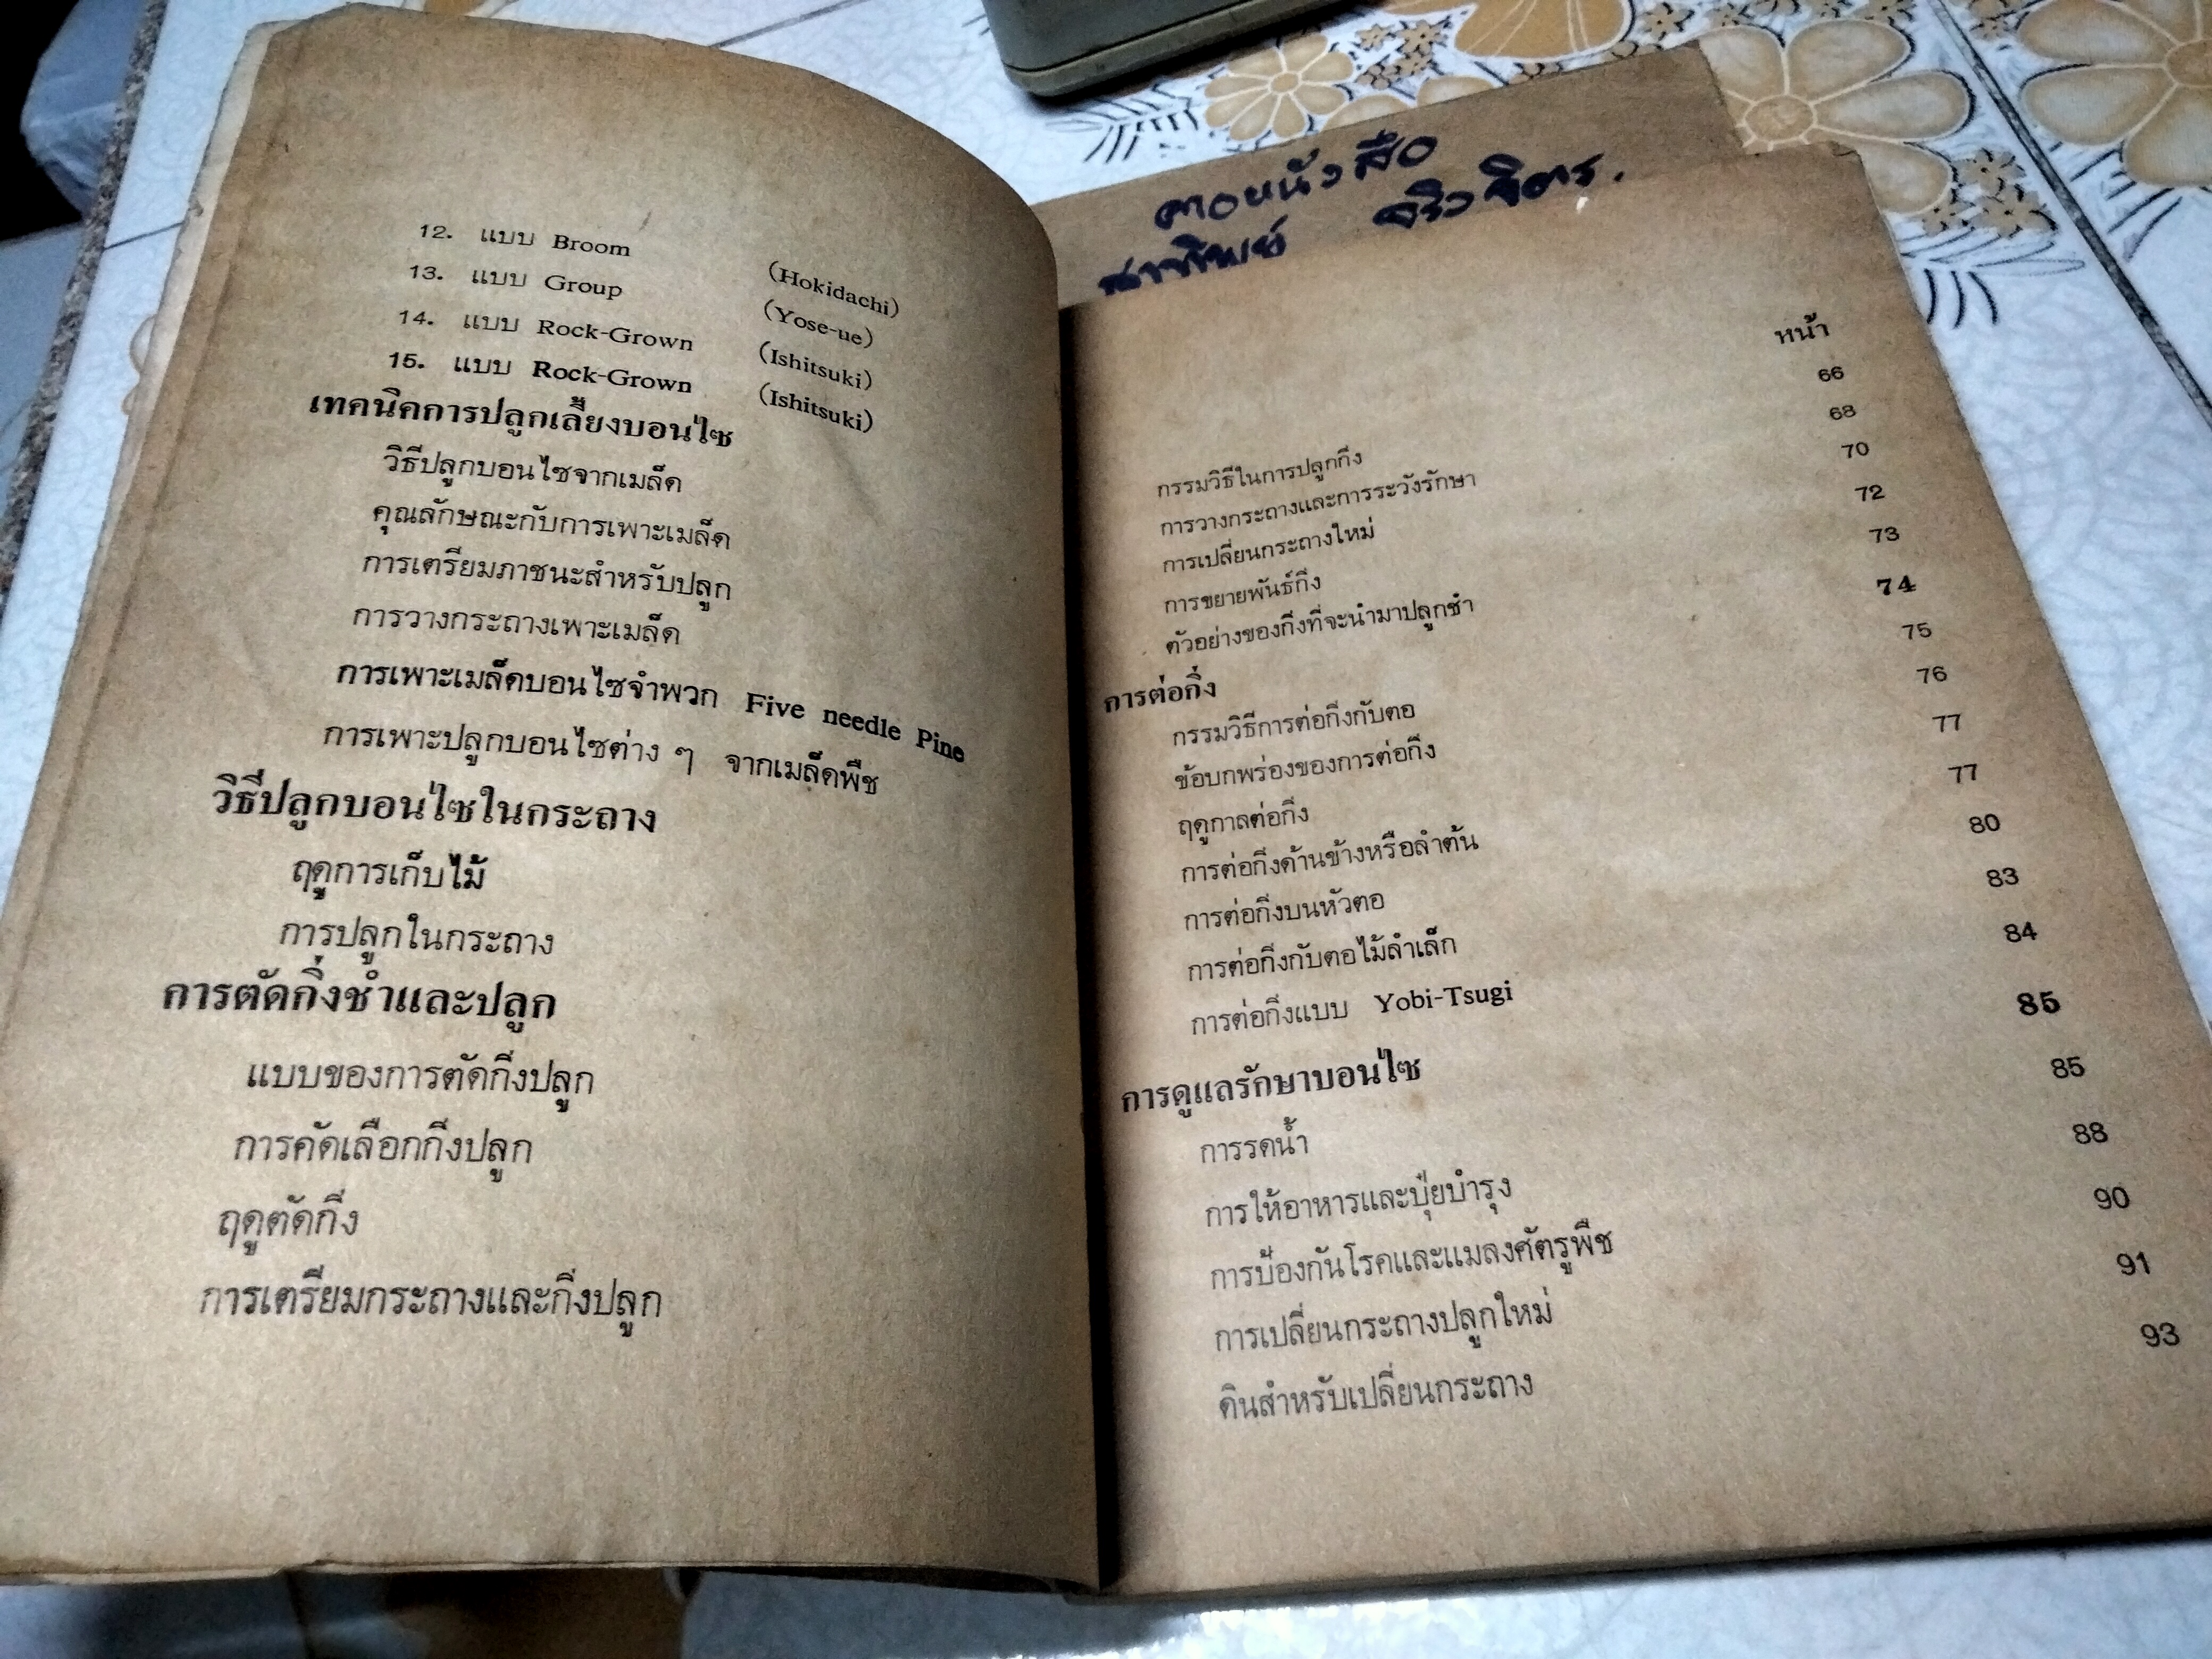 12. แบบ Broom (Hokidachi)
13. แบบ Group (Yose-ue)
14. แบบ Rock-Grown (Ishitsuki)
15. แบบ Rock-Grown (Ishitsuki)
เทคนิคการปลูกเลี้ยงบอนไซ
วิธีปลูกบอนไซจากเมล็ด
คุณลักษณะกับการเพาะเมล็ด
การเตรียมภาชนะสำหรับปลูก
การวางกระถางเพาะเมล็ด
การเพาะเมล็ดบอนไซจำพวก Five needle Pine
การเพาะปลูกบอนไซต่าง ๆ จากเมล็ดพืช
วิธีปลูกบอนไซในกระถาง
ฤดูการเก็บไม้
การปลูกในกระถาง
การตัดกิ่งชำและปลูก
แบบของการตัดกิ่งปลูก
การคัดเลือกกิ่งปลูก
ฤดูตัดกิ่ง
การเตรียมกระถางและกิ่งปลูก
หนังสือ
หน้า
กรรมวิธีในการปลูกกิ่ง 66
การวางกระถางและการระวังรักษา 68
การเปลี่ยนกระถางใหม่ 70
การขยายพันธ์กิ่ง 72
ตัวอย่างของกิ่งที่จะนำมาปลูกชำ 73
การต่อกิ่ง 74
กรรมวิธีการต่อกิ่งกับตอ 75
ข้อบกพร่องของการต่อกิ่ง 76
ฤดูกาลต่อกิ่ง 77
การต่อกิ่งด้านข้างหรือลำต้น 77
การต่อกิ่งบนหัวตอ 80
การต่อกิ่งกับตอไม้ลำเล็ก 83
การต่อกิ่งแบบ Yobi-Tsugi 84
การดูแลรักษาบอนไซ 85
การรดน้ำ 85
การให้อาหารและปุ๋ยบำรุง 88
การป้องกันโรคและแมลงศัตรูพืช 90
การเปลี่ยนกระถางปลูกใหม่ 91
ดินสำหรับเปลี่ยนกระถาง 93